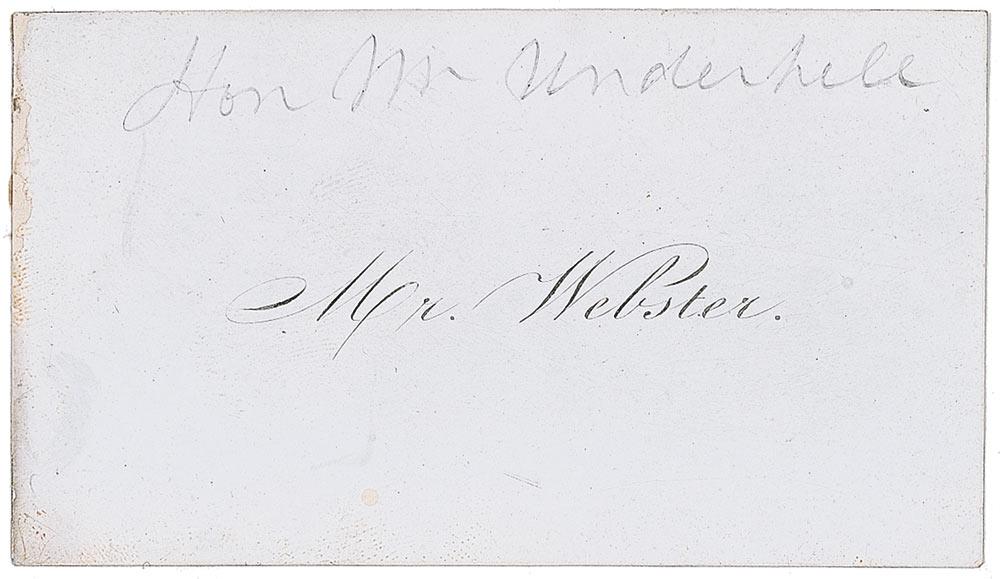 Hon Mr Underhill
Mr. Webster.